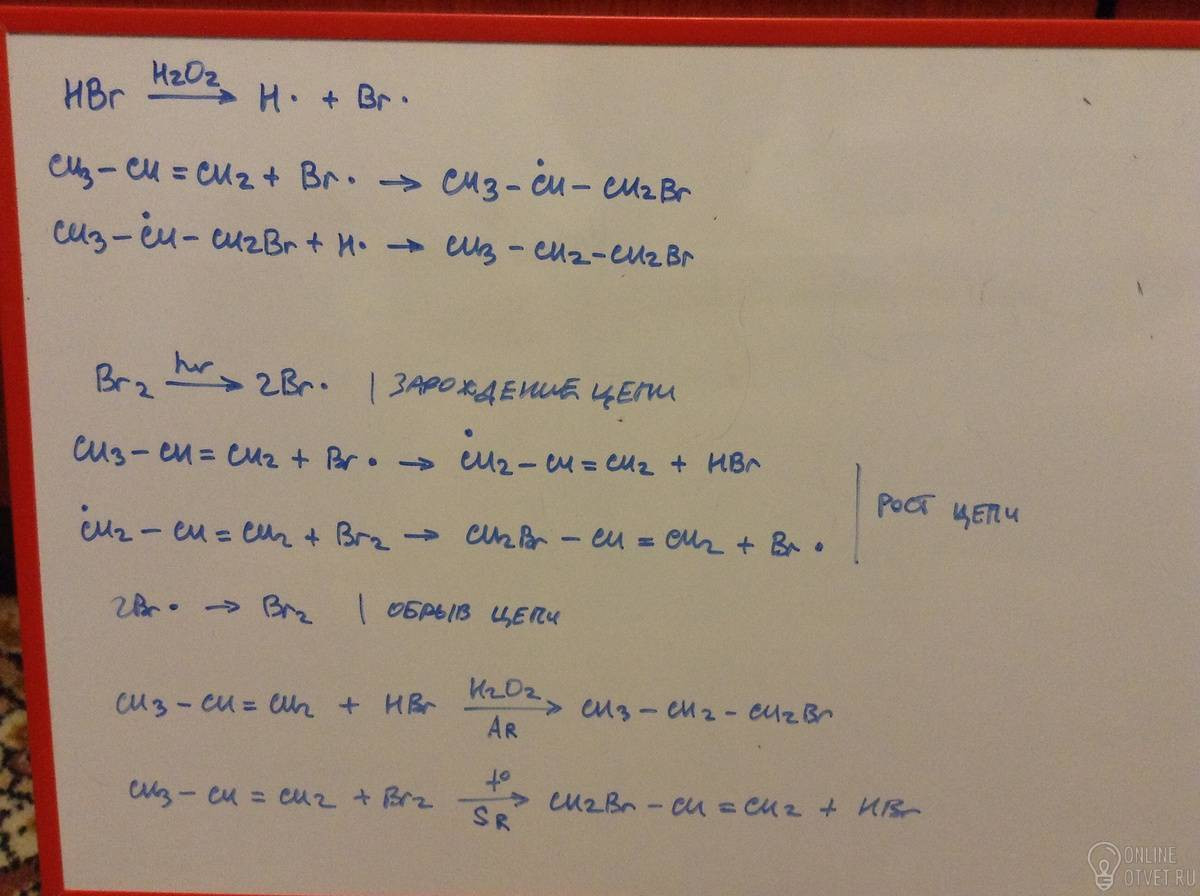 HBr —H2O2→ H· + Br·
CH3 – CH = CH2 + Br· → CH3 – ĊH – CH2Br
CH3 – ĊH – CH2Br + H· → CH3 – CH2 – CH2Br
Br2 —hν→ 2Br· | ЗАРОЖДЕНИЕ ЦЕПИ
CH3 – CH = CH2 + Br· → ĊH2 – CH = CH2 + HBr
РОСТ ЦЕПИ
ĊH2 – CH = CH2 + Br2 → CH2Br – CH = CH2 + Br·
2Br· → Br2 | ОБРЫВ ЦЕПИ
CH3 – CH = CH2 + HBr —H2O2→ CH3 – CH2 – CH2Br
AR
CH3 – CH = CH2 + Br2 —t°→ CH2Br – CH = CH2 + HBr
SR
ONLINE
OTVET.RU